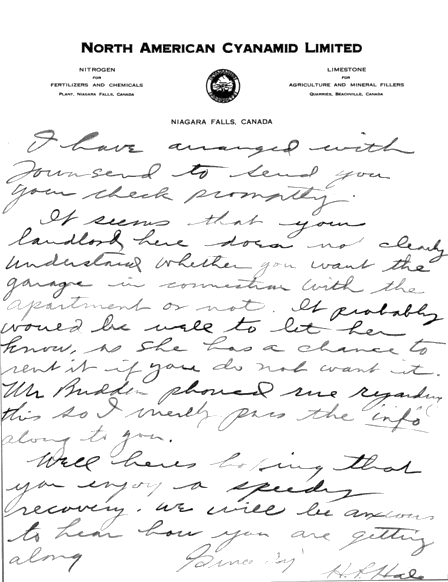 NORTH AMERICAN CYANAMID LIMITED
NITROGEN
FOR
FERTILIZERS AND CHEMICALS
PLANT, NIAGARA FALLS, CANADA
LIMESTONE
FOR
AGRICULTURE AND MINERAL FILLERS
QUARRIES, BEACHVILLE, CANADA
NIAGARA FALLS, CANADA
I have arranged with
Townsend to send you
your check promptly.
It seems that your
landlord, here does not clearly
understand whether you want the
garage in connection with the
apartment or not. It probably
would be well to let her
know, as she has a chance to
rent it if you do not want it.
Mr Budden phoned me regarding
this so I merely pass the "info"
along to you.
Well heres hoping that
you enjoy a speedy
recovery. We will be anxious
to hear how you are getting
along
Sincerely